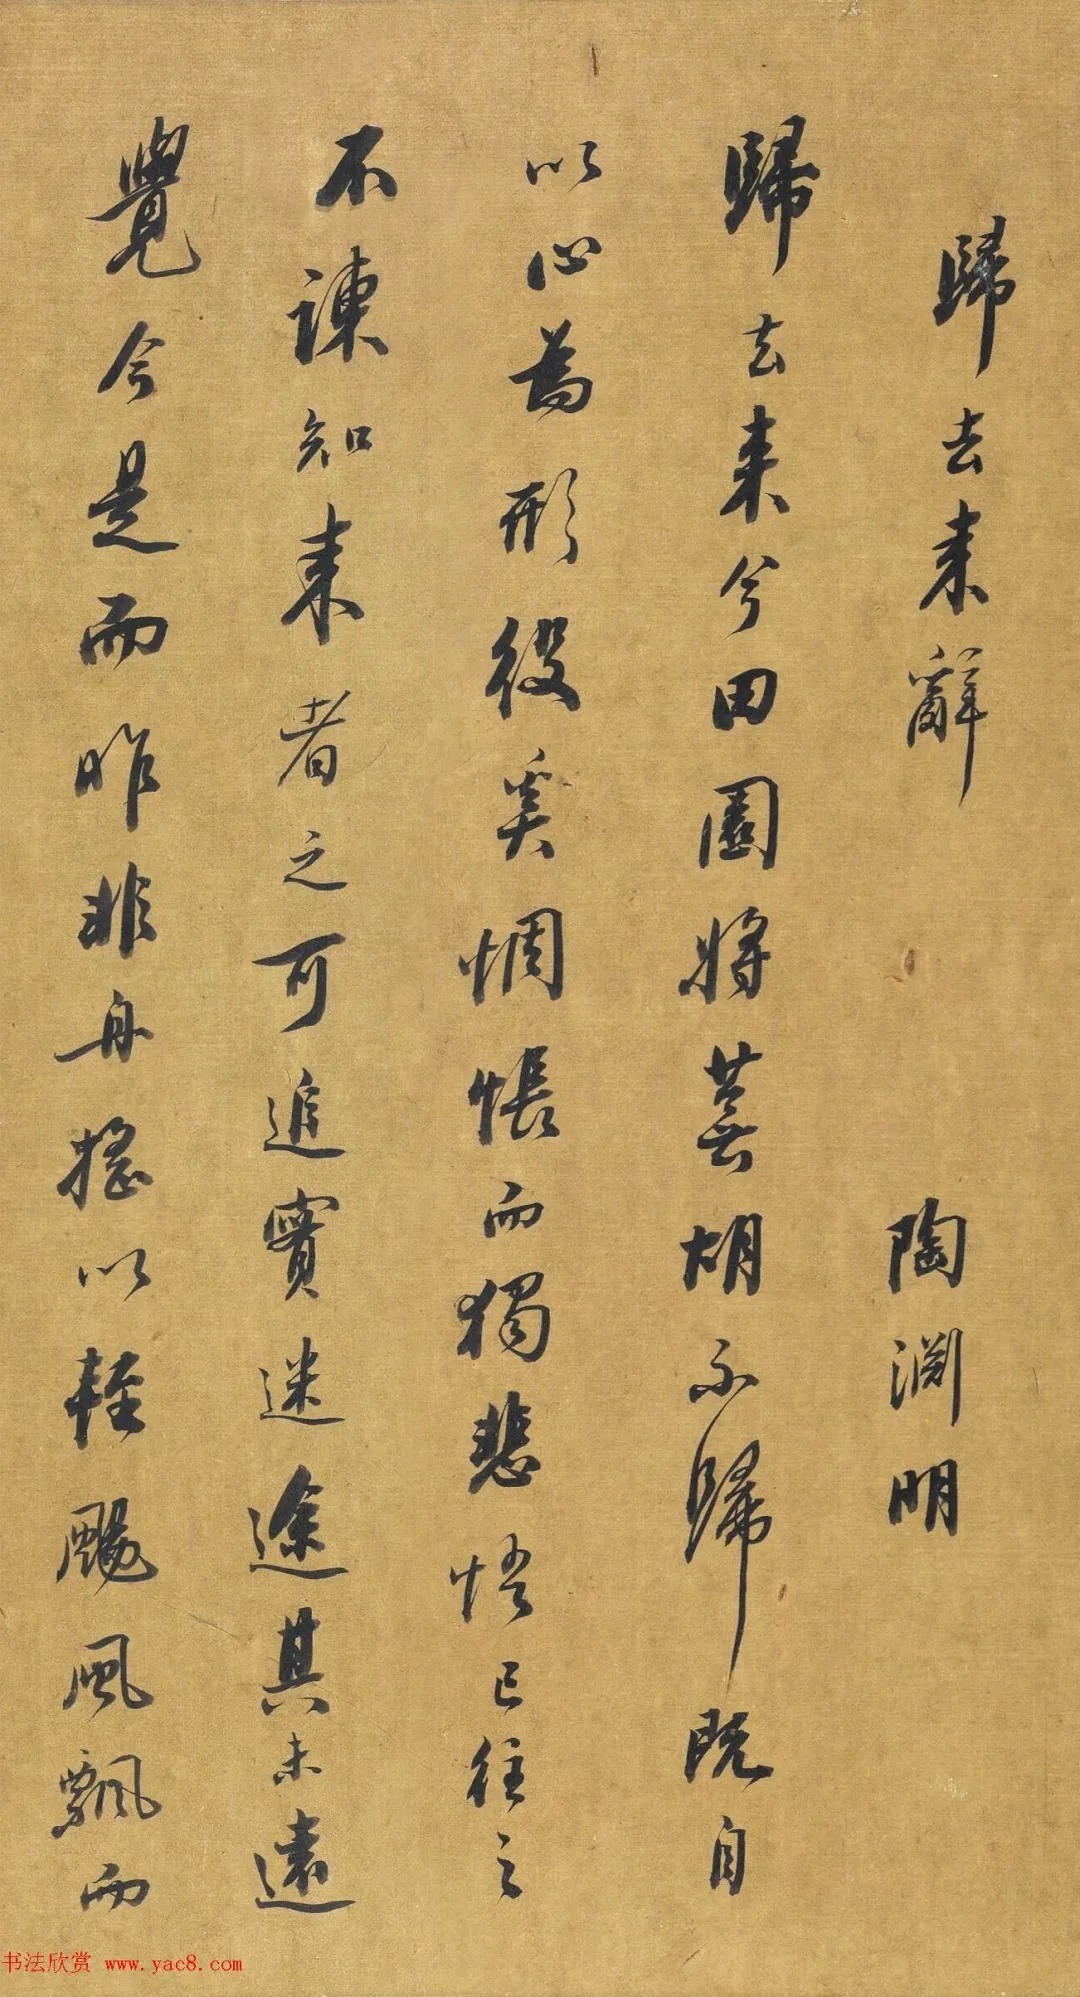 歸去来辭 陶淵明
歸去来兮田園將蕪胡不歸既自
以心為形役奚惆悵而獨悲悟已往之
不諫知来者之可追實迷途其未遠
覺今是而昨非舟搖以輕颺風飄而
书法欣赏 www.yac8.com